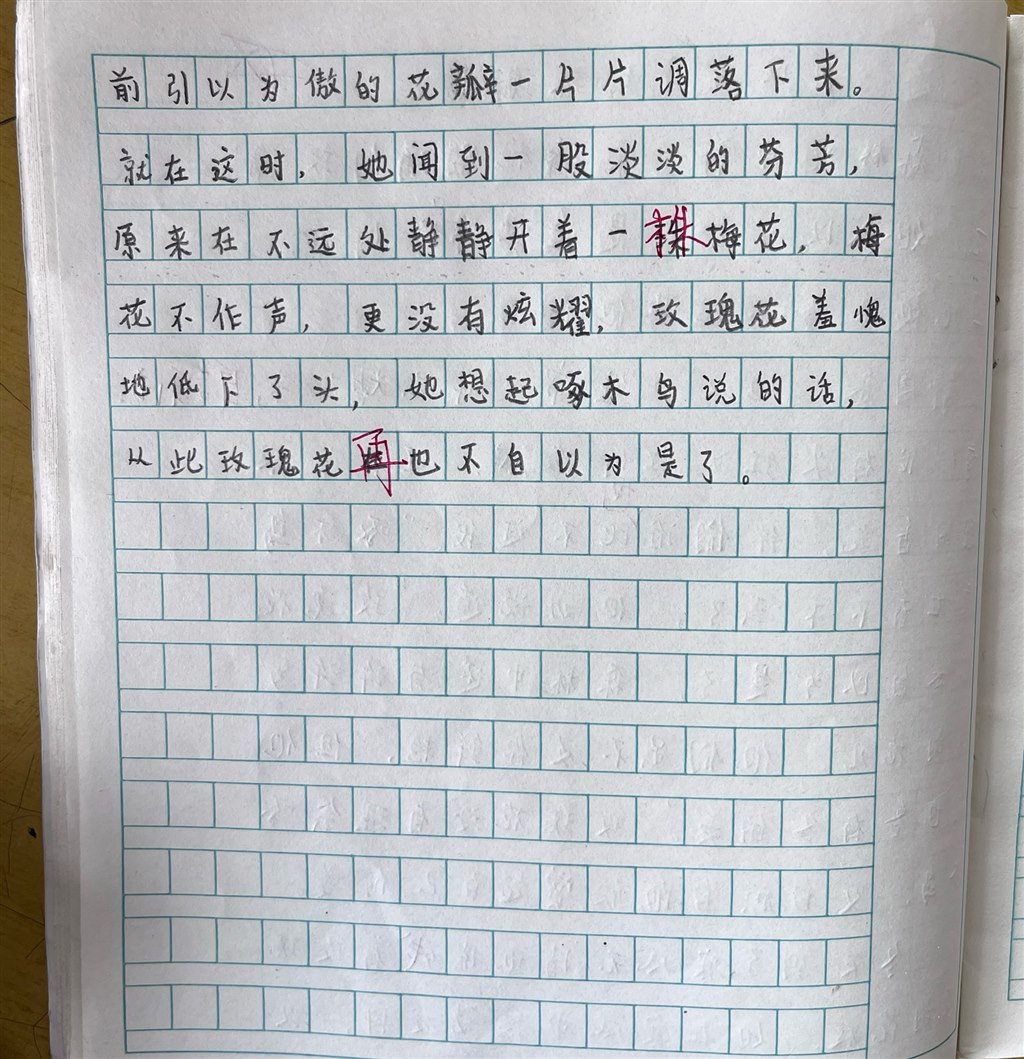 前引以为傲的花瓣一片片调落下来。
就在这时，她闻到一股淡淡的芬芳，
原来在不远处静静开着一株梅花，梅
花不作声，更没有炫耀，玫瑰花羞愧
地低下了头，她想起啄木鸟说的话，
从此玫瑰花再也不自以为是了。